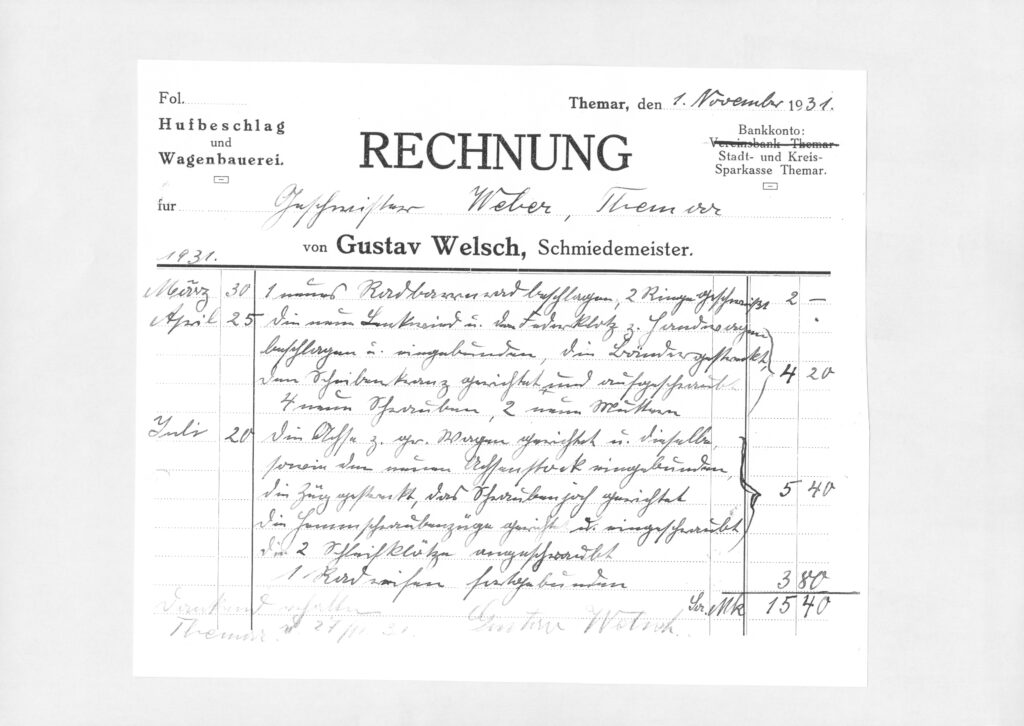 Fol.
Themar, den 1. November 1931.
Hufbeschlag
und
Wagenbauerei.
RECHNUNG
Bankkonto:
Vereinsbank Themar
Stadt- und Kreis-
Sparkasse Themar.
fur Geschwister Weber, Themar
von Gustav Welsch, Schmiedemeister.
1931.
März 30 1 neues Radbarrenrad beschlagen, 2 Ringe geschweißt 2 –
April 25 die neue Lenkwied u. den Federklotz z. Handwagen
beschlagen u. eingebunden, die Bänder gestreckt, 4 20
den Scheibenkranz gerichtet und aufgeschraubt
4 neue Schrauben, 2 neue Muttern
Juli 20 die Achse z. gr. Wagen gerichtet u. dieselbe,
sowie den neuen Achsenstock eingebunden,
die Züg gestreckt, das Schraubenjoch gerichtet 5 40
die Hemmschraubenzüge gericht u. eingeschraubt
die 2 Schleifklötze angeschraubt
1 Radreifen festgebunden 3 80
Sa. Mk 15 40
Dankend erhalten
Themar 27 31. Gustav Welsch.